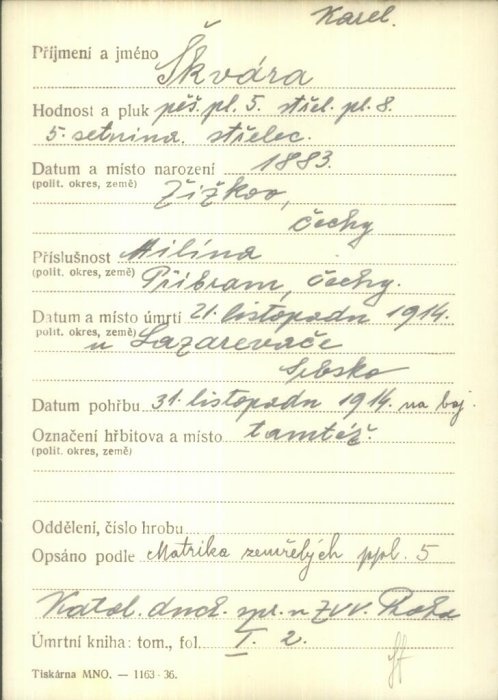 Karel.
Příjmení a jméno Škvára
Hodnost a pluk pěš. pl. 5. střel. pl. 8.
5. setnina. střelec.
Datum a místo narození 1883.
(polit. okres, země) Žižkov,
Čechy
Příslušnost Milína
(polit. okres, země) Příbram, Čechy.
Datum a místo úmrtí 21. listopadu 1914.
polit. okres, země) u Lazarevače
Srbsko
Datum pohřbu 31. listopadu 1914. na boj.
Označení hřbitova a místo tamtéž.
(polit. okres, země)
Oddělení, číslo hrobu
Opsáno podle Matrika zemřelých ppl. 5
Katol. duch. spr. u ZVV. Praha
Úmrtní kniha: tom., fol. I. 2.
Tiskárna MNO. — 1163-36.